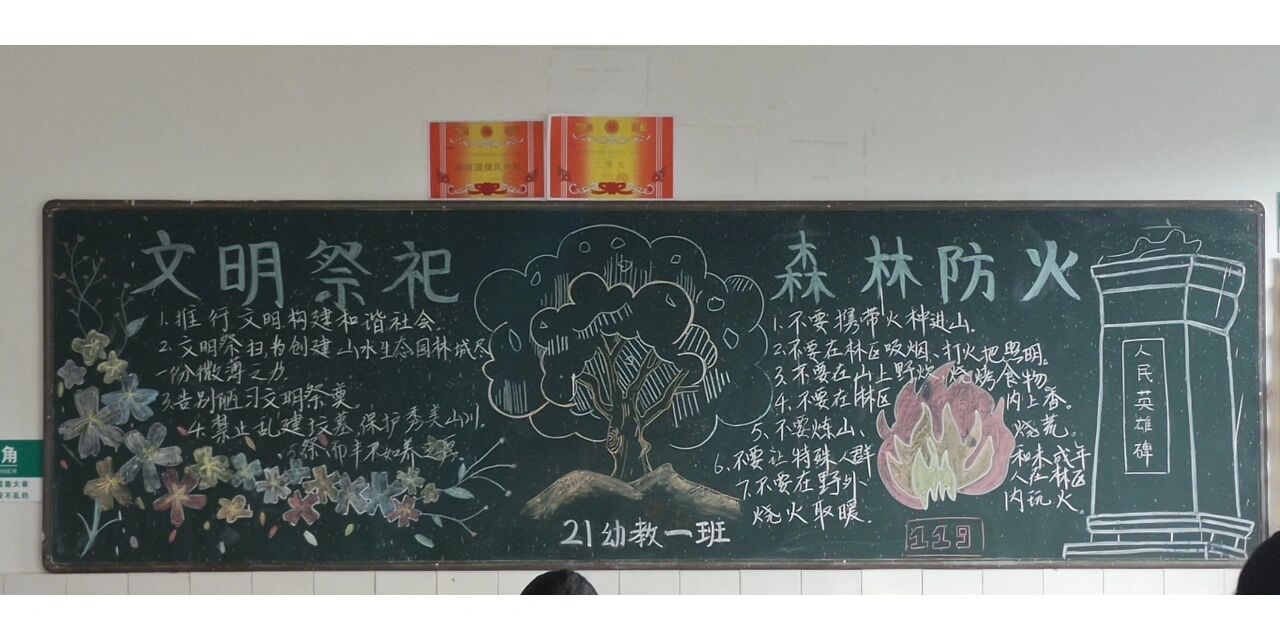 文明祭祀
1.推行文明构建和谐社会.
2.文明祭扫为创建山水生态园林城尽
一份微薄之力.
3.告别陋习文明祭奠
4.禁止乱建坟墓,保护秀美山川.
5.祭而丰不如养之厚.
21幼教一班
森林防火
1.不要携带火种进山.
2.不要在林区吸烟、打火把照明.
3.不要在山上野炊,烧烤食物.
4.不要在林区内上香。
5.不要炼山、烧荒。
6.不要让特殊人群和未成年人在林区内玩火.
7.不要在野外
烧火取暖.
119
人民英雄碑
角